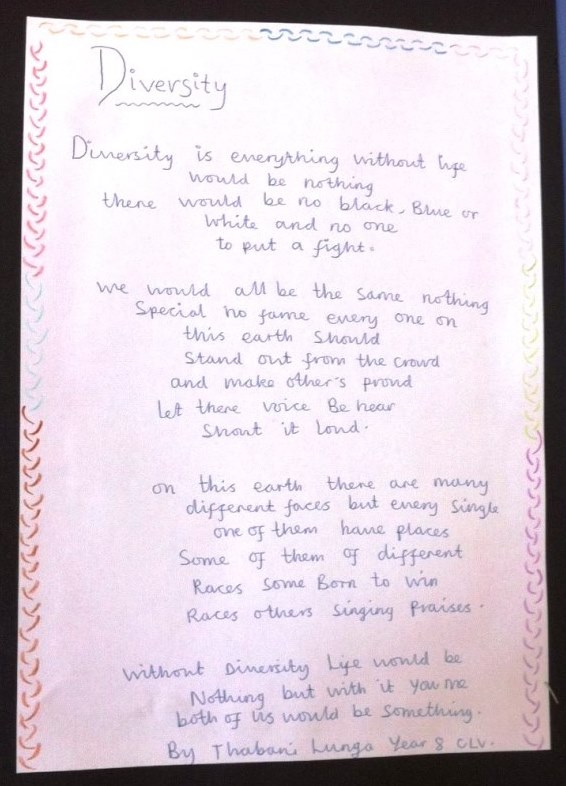 Diversity
Diversity is everything without life
would be nothing
there would be no black, Blue or
white and no one
to put a fight.
we would all be the same nothing
Special no fame every one on
this earth should
Stand out from the crowd
and make other's proud
Let there voice Be hear
Shout it loud.
on this earth there are many
different faces but every single
one of them have places
Some of them of different
Races some Born to win
Races others singing praises.
without Diversity Life would be
Nothing but with it you me
both of us would be something.
By Thabani Lunga Year 8 CLV.